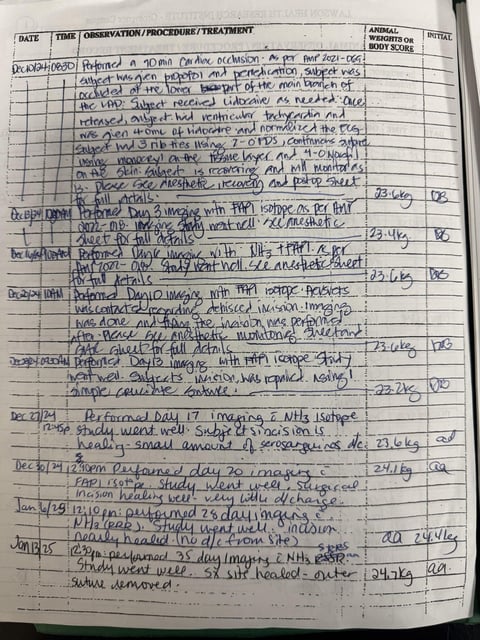 LAWSON HEALTH RESEARCH INSTITUTE
DATE TIME OBSERVATION / PROCEDURE / TREATMENT ANIMAL WEIGHTS OR BODY SCORE INITIAL
Dec 10/24 0830 Performed a 90min Cardiac occlusion. as per AMP 2021-
subject was given propofol and premedication, subject was
occluded at the lower part of the main branch of
the LAD. Subject received lidocaine as needed. Once
released, subject had ventricular tachycardia and
was given of lidocaine and normalized the ECG
subject had 3 rib ties using 2-0 PDS, continuous suture
using monocryl on the tissue layer and 4-0
on the skin. Subject is recovering and will monitor as
is. Please see anesthetic, recovery and postop sheet
for full details. 23.6kg DB
Dec 13/24 1000AM Performed Day 3 imaging with FAPI isotope as per AMP
2022- Imaging study went well. See anesthetic
sheet for full details 23.4kg DB
Performed Day imaging with NH3 + FAPI. as per
AMP 2022- Study went well. See anesthetic sheet
for full details 23.6kg DB
Dec 20/24 10AM Performed Day 10 imaging with FAPI isotope.
was contacted regarding dehisced incision. Imaging
was done and fixing the incision was performed
after. Please see anesthetic monitoring sheet and
sheet for full details. 23.6kg DB
Performed Day 13 imaging with FAPI isotope study
went well. Subjects incision was repaired using 1
simple cruciate suture. 23.2kg DB
Dec 27/24 Performed Day 17 imaging c̄ NH3 isotope
12:45p study went well. Subject's incision is
healing - small amount of serosanguinous d/c. 23.6kg ad
Dec 30/24 12:30pm Performed day 20 imaging c̄ 24.1kg aa
FAPI isotope. Study went well. Surgical
incision healing well - very little d/charge.
Jan 6/25 12:10pm: performed 28 day imaging c̄
NH3 Study went well. incision
nearly healed (no d/c from site) aa 24.4kg
Jan 13 25 12:30pm: performed 35 day imaging c̄ NH3
Study went well. Sx site healed - outer 24.7kg aa
suture removed.